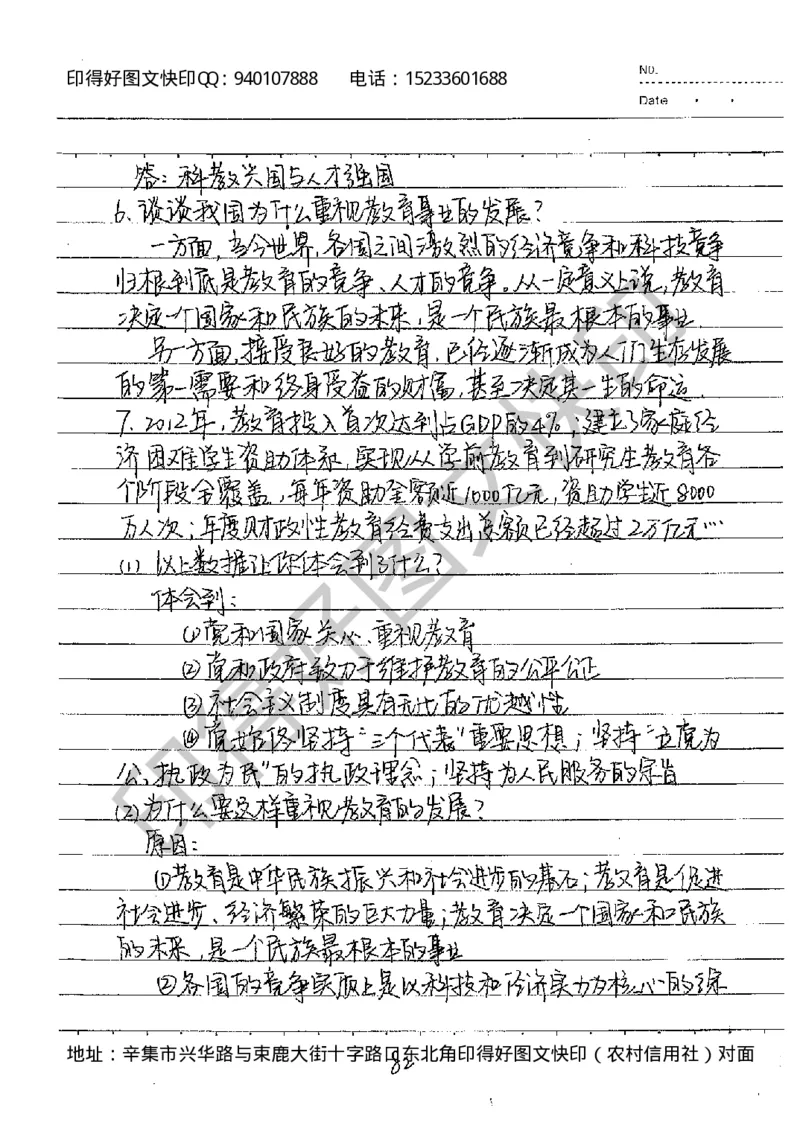 印得好图文快印QQ：940107888 电话：15233601688
No.
Date
答：科教兴国与人才强国
6、谈谈我国为什么重视教育事业的发展？
一方面，当今世界，各国之间激烈的经济竞争和科技竞争
归根到底是教育的竞争、人才的竞争。从一定意义上说，教育
决定一个国家和民族的未来，是一个民族最根本的事业.
另一方面，接受良好的教育，已经逐渐成为人们生存发展
的第一需要和终身受益的财富，甚至决定其一生的命运.
7、2012年，教育投入首次达到占GDP的4%；建立了家庭经
济困难学生资助体系，实现从学前教育到研究生教育各
个阶段全覆盖，每年资助金额近1000亿元，资助学生近8000
万人次；年度财政性教育经费支出总额已经超过2万亿元…
(1) 以上数据让你体会到了什么？
体会到：
①党和国家关心、重视教育
②党和政府致力于维护教育的公平公正
③社会主义制度具有无比的优越性
④党始终坚持“三个代表”重要思想；坚持“立党为
公、执政为民”的执政理念；坚持为人民服务的宗旨
(2)为什么要这样重视教育的发展？
原因：
①教育是中华民族振兴和社会进步的基石；教育是促进
社会进步、经济繁荣的巨大力量；教育决定一个国家和民族
的未来，是一个民族最根本的事业
②各国的竞争实质上是以科技和经济实力为核心的综
82
地址：辛集市兴华路与束鹿大街十字路口东北角印得好图文快印（农村信用社）对面
印得好图文快印